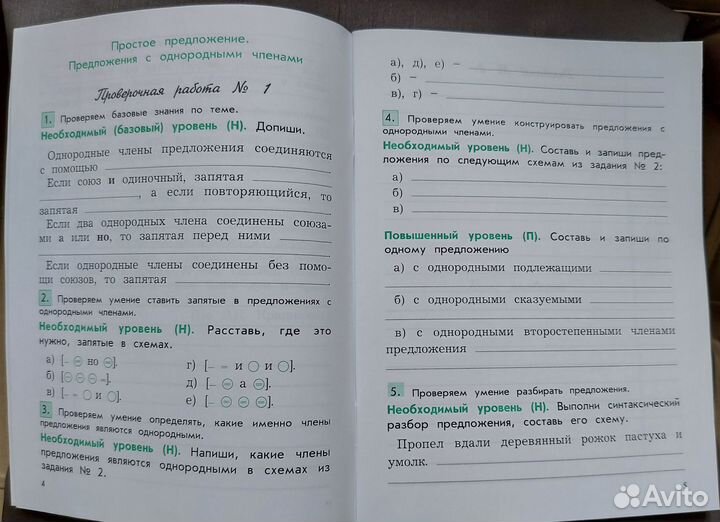 Простое предложение.
Предложения с однородными членами
Проверочная работа № 1
1. Проверяем базовые знания по теме.
Необходимый (базовый) уровень (Н). Допиши.
Однородные члены предложения соединяются
с помощью
Если союз и одиночный, запятая
, а если повторяющийся, то
запятая
Если два однородных члена соединены союза-
ми а или но, то запятая перед ними
Если однородные члены соединены без помо-
щи союзов, то запятая
2. Проверяем умение ставить запятые в предложениях с
однородными членами.
Необходимый уровень (Н). Расставь, где это
нужно, запятые в схемах.
а) [– но ].
б) [ =].
в) [– = и ].
г) [– = и и ].
д) [– а ].
е) [– ].
3. Проверяем умение определять, какие именно члены
предложения являются однородными.
Необходимый уровень (Н). Напиши, какие члены
предложения являются однородными в схемах из
задания № 2.
4
а), д), е) –
б) –
в), г) –
4. Проверяем умение конструировать предложения с
однородными членами.
Необходимый уровень (Н). Составь и запиши пред-
ложения по следующим схемам из задания № 2:
а)
б)
в)
Повышенный уровень (П). Составь и запиши по
одному предложению
а) с однородными подлежащими
б) с однородными сказуемыми
в) с однородными второстепенными членами
предложения
5. Проверяем умение разбирать предложения.
Необходимый уровень (Н). Выполни синтаксический
разбор предложения, составь его схему.
Пропел вдали деревянный рожок пастуха и
умолк.
5
Avito